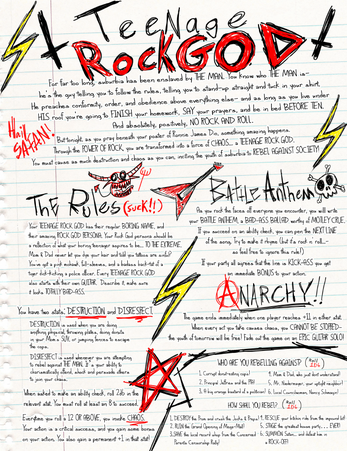 TEENAGE
ROCKGOD
For far too long, suburbia has been enslaved by THE MAN. You know who THE MAN is--
he's the guy telling you to follow the rules, telling you to stand-up straight and tuck in your shirt.
He preaches conformity, order, and obedience above everything else-- and as long as you live under
HIS roof you're going to FINISH your homework, SAY your prayers, and be in bed BEFORE TEN.
And absolutely, positively, NO ROCK AND ROLL.
Hail SATAN!
But tonight, as you pray beneath your poster of Ronnie James Dio, something amazing happens.
Through the POWER OF ROCK, you are transformed into a force of CHAOS... a TEENAGE ROCK GOD.
You must cause as much destruction and chaos as you can, inciting the youth of suburbia to REBEL AGAINST SOCIETY!
The Rules (suck!!)
Your TEENAGE ROCK GOD has their regular BORING NAME, and
their amazing ROCK GOD PERSONA. Your Rock God persona should be
a reflection of what your boring teenager aspires to be... TO THE EXTREME.
Mom & Dad won't let you dye your hair and what up tattoos are awful?
You've got a pink mohawk, full-sleeves, and a badass back-tat of a
tiger doing
attacking a police officer. Every TEENAGE ROCK GOD
also starts with their own GUITAR. Describe it, make sure
it looks TOTALLY BAD-ASS.
You have two stats: DESTRUCTION and DISRESPECT.
DESTRUCTION is used when you are doing
anything physical: throwing plates, doing donuts
in your Mom's SUV, or jumping fences to escape
the cops.
DISRESPECT is used whenever you are attempting
to rebel against THE MAN. It is your ability to
charismatically offend, shock and persuade others
to join your chaos.
When asked to make an ability check, roll 2d6 in the
relevant stat. You must roll at least an 8 to succeed.
Everytime you roll a 12 OR ABOVE, you make CHAOS.
Your action is a critical success, and you gain some bonus
on your action. You also gain a permanent +1 in that stat!
Battle Anthem
As you rock the faces off everyone you encounter, you will write
your BATTLE ANTHEM, a BAD-ASS BALLAD worthy of MOTLEY CRUE.
If you succeed on an ability check, you can pen the NEXT LINE
of the song. Try to make it rhyme (but it's rock n roll--
so feel free to ignore this rule!)
If your party all agrees that the line is KICK-ASS you get
an immediate BONUS to your action.
ANARCHY!!
The game ends immediately when one player reaches +11 in either stat.
When every act you take causes chaos, you CANNOT BE STOPPED--
the youth of tomorrow will be free! Fade out the game on an EPIC GUITAR SOLO!
WHO ARE YOU REBELLING AGAINST? (Roll 1d6)
1. Corrupt donut-eating cops!
2. Principal Jeffries and the PTA!
3. A big orange bastard of a politician!
4. Mom & Dad, who just don't understand!
5. Mr. Honkerwager, your uptight neighbor!
6. Local Councilwoman, Nancy Schumaper!
HOW SHALL YOU REBEL? (Roll 1d6)
1. DESTROY the Prom and crash the Jocks & Preps!
2. RUIN the Grand Opening of Mega-Mall!
3. SAVE the local record shop from the Concerned
Parents Censorship Rally!
4. RESCUE your brother Ricky from the repressed
5. STAGE the greatest house party.... EVER!
6. SUMMON Satan... and defeat him in
a ROCK-OFF!